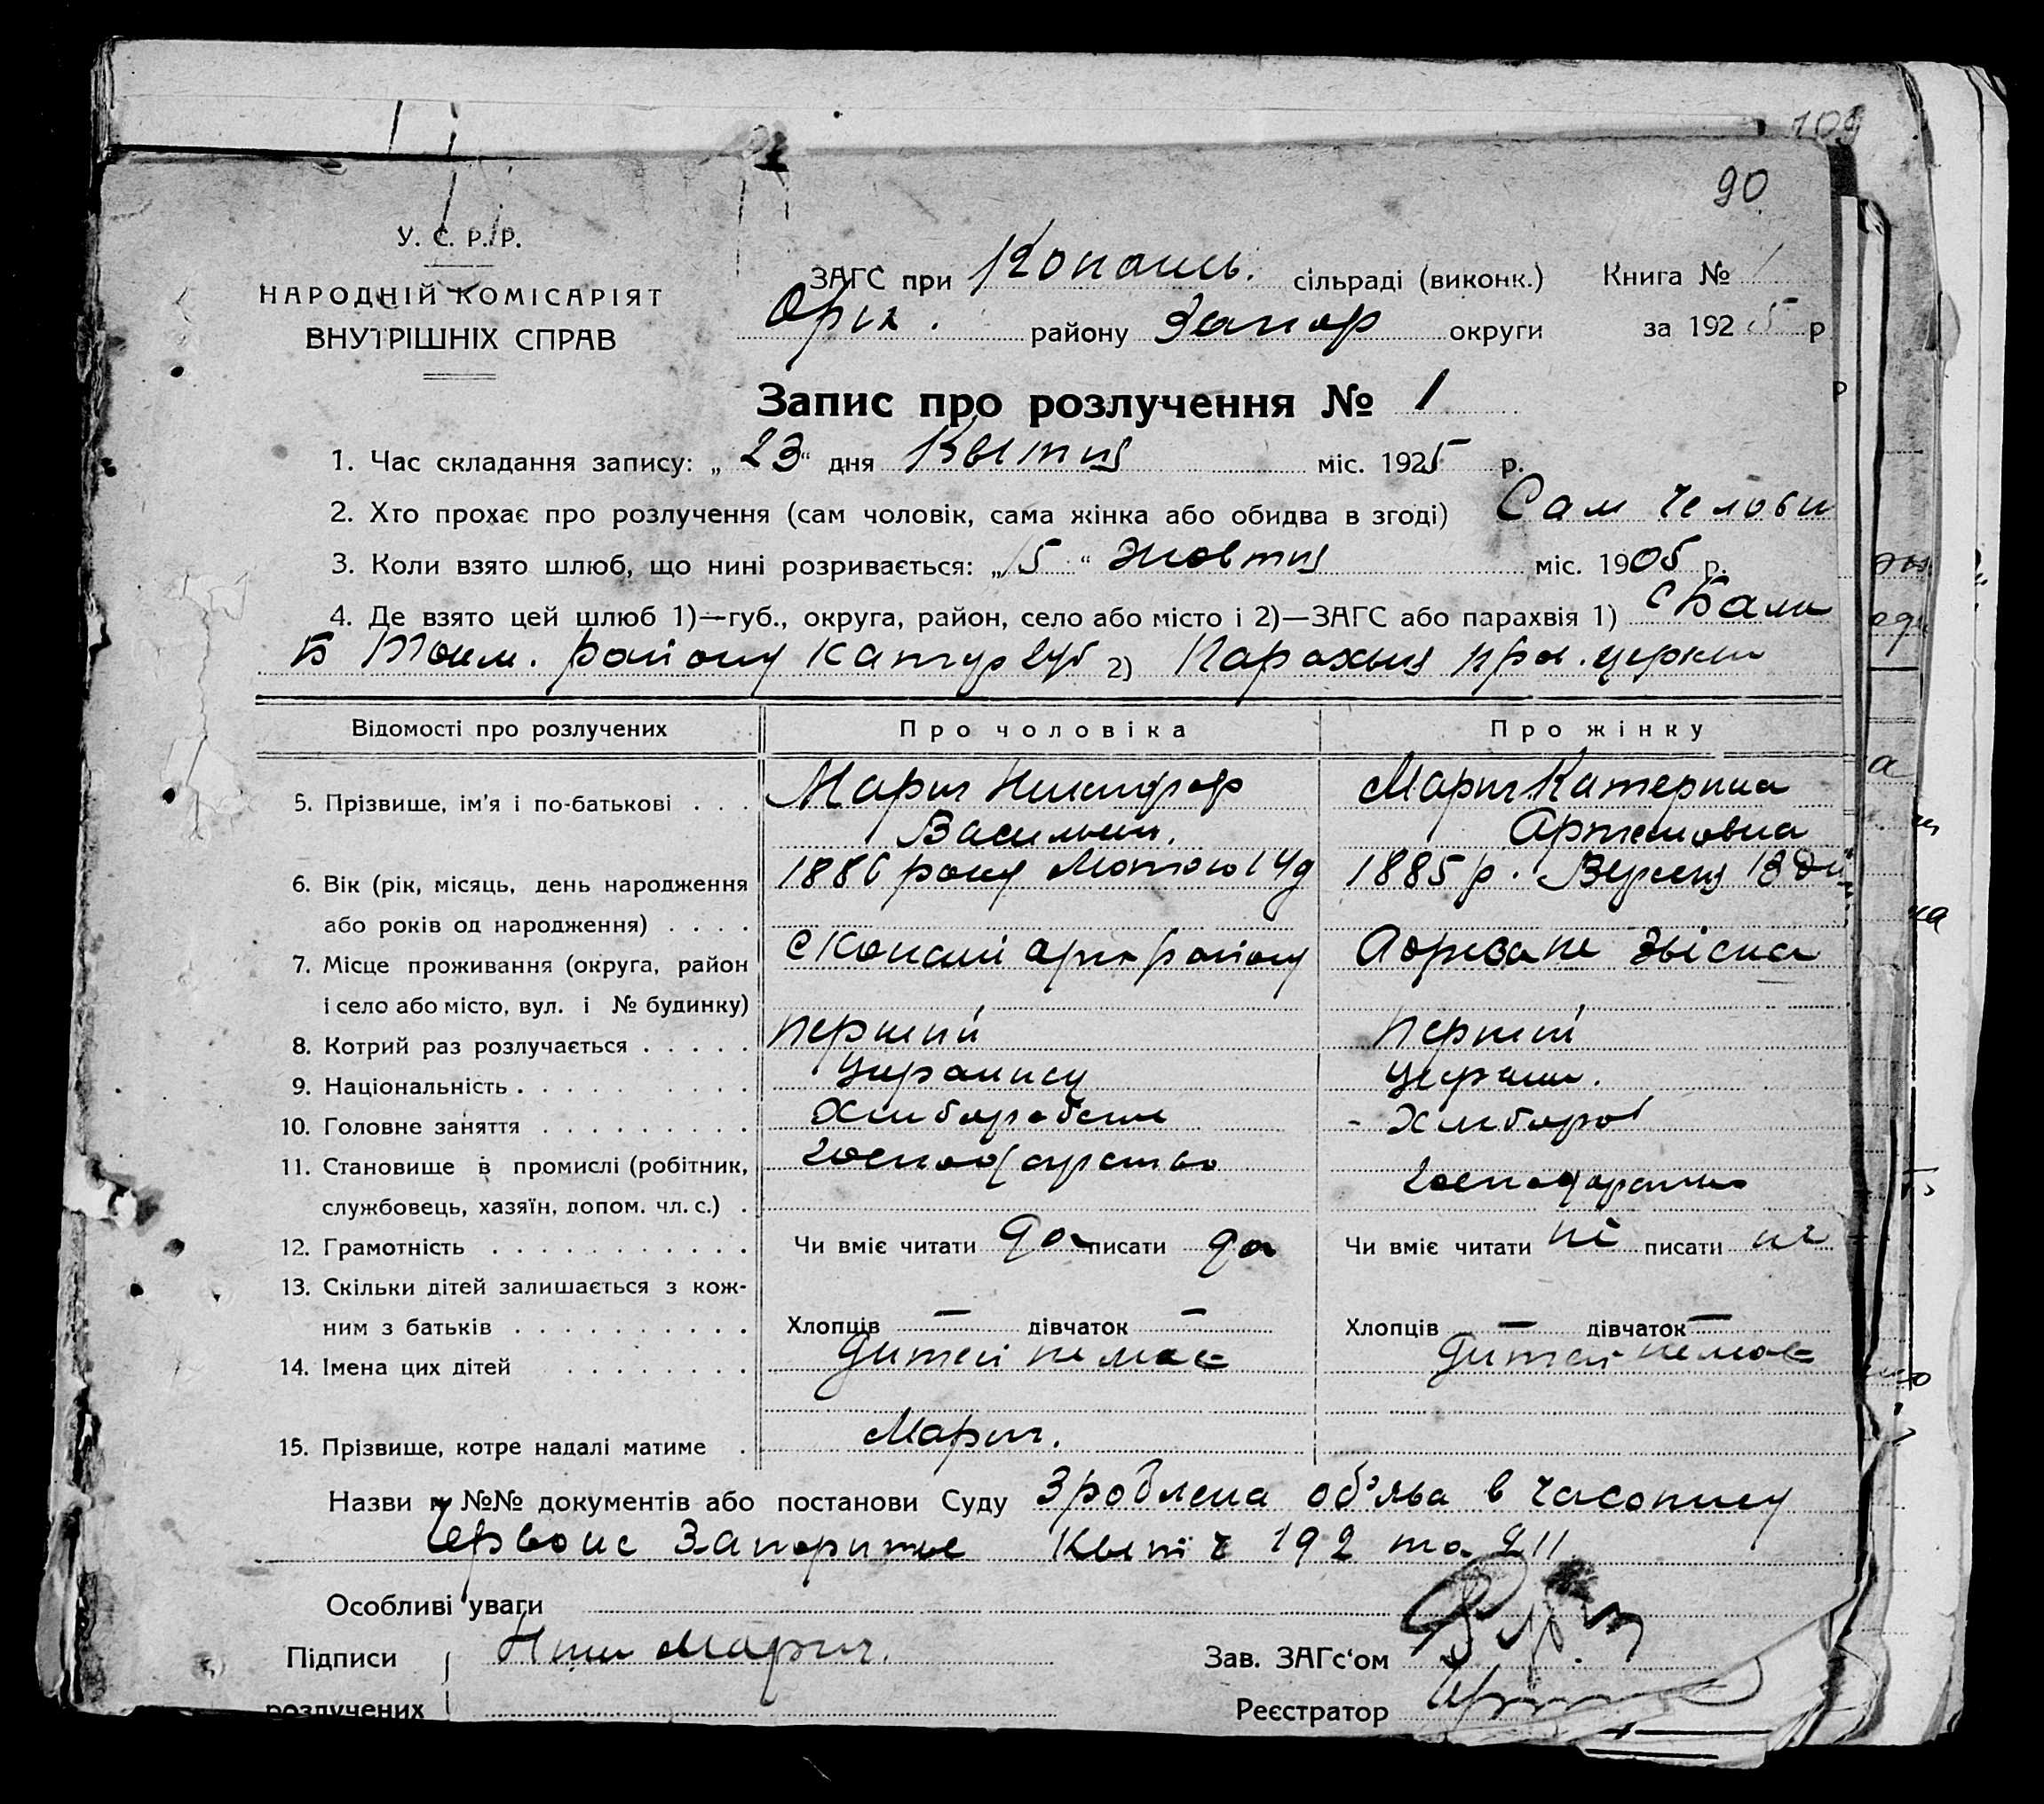 109
90
У. С. Р. Р.
НАРОДНІЙ КОМІСАРІЯТ
ВНУТРІШНІХ СПРАВ
ЗАГС при Копань. сільраді (виконк.) Книга № 1
Оріх. району Запор округи за 1925 р
Запис про розлучення № 1
1. Час складання запису: „23“ дня Квітня міс. 1925 р.
2. Хто прохає про розлучення (сам чоловік, сама жінка або обидва в згоді) Сам Чолови
3. Коли взято шлюб, що нині розривається: „15“ жовтня міс. 1905 р.
4. Де взято цей шлюб 1)—губ., округа, район, село або місто і 2)—ЗАГС або парахвія 1) с Балк
Б Току. району Катур губ 2) Парахвія пра. церкви
Відомості про розлучених Про чоловіка Про жінку
5. Прізвище, ім'я і по-батькові . . . Марич Никифор Марич Катерина
Васильев. Артемовна
6. Вік (рік, місяць, день народження 1886 року Лютого 14д 1885 р. Вересня 13 дня
або років од народження) . . . .
7. Місце проживання (округа, район с Копані Оріх району Адреса не звісна
і село або місто, вул. і № будинку)
8. Котрий раз розлучається . . . . . перший перший
9. Національність . . . . . . . . . Українец Україн.
10. Головне заняття . . . . . . . . . Хліборобств - Хлибороб
11. Становище в промислі (робітник, господарство господарство
службовець, хазяїн, допом. чл. с.) .
12. Грамотність . . . . . . . . . . . Чи вміє читати да писати да Чи вміє читати ні писати ні
13. Скільки дітей залишається з кож-
ним з батьків . . . . . . . . . . Хлопців — дівчаток — Хлопців — дівчаток —
14. Імена цих дітей . . . . . . . . Дитей немає Дитей немає
15. Прізвище, котре надалі матиме . Марич.
Назви й №№ документів або постанови Суду Зроблена об'ява в часопису
Червоне Запорижье Квіт ч 192 та 211.
Особливі уваги
Підписи Марич. Зав. ЗАГс‘ом
розлучених Реєстратор